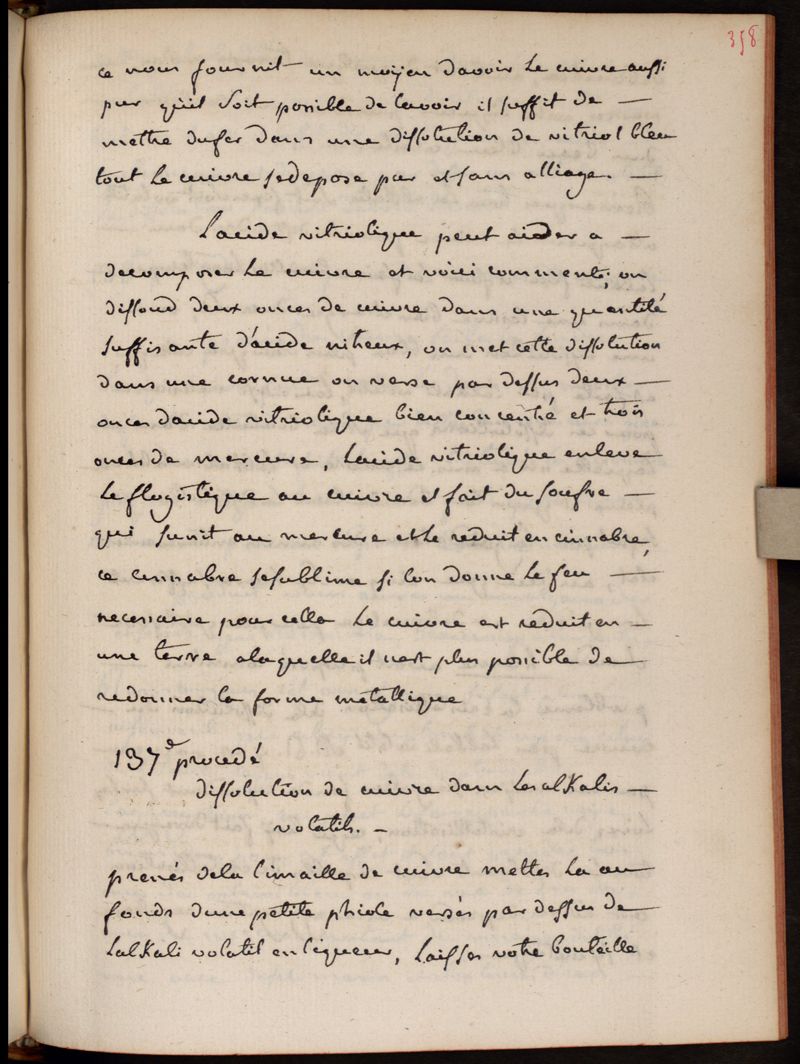 358
ce nous fournit un moÿen davoir Le cuivre aussi
pur quil soit possible de lavoir il suffit de —
mettre dufer dans une dissolution de vitriol bleu
tout Le cuivre sedepose pur et sans alliage. —
Lacide vitriolique peut aider a —
decomposer Le cuivre et voici comment; on
dissoud deux onces de cuivre dans une quantité
suffisante d'acide nitreux, on met cette dissolution
dans une cornue on verse par dessus deux —
onces dacide vitriolique bien concentré et trois
onces de mercure, Lacide vitriolique enleve
Le flogistique au cuivre et fait du soufre —
qui sunit au mercure et Le reduit en cinnabre,
ce cinnabre sesublime si lon donne Le feu —
necessaire pour cella Le cuivre est réduit en —
une terre alaquelle il nest plus possible de
redonner la forme métallique
137e procedé
dissolution de cuivre dans Les alKalis —
volatils. —
prenés dela limaille de cuivre mettes La au
fonds dune petite phiole versés par dessus de
LalKali volatil en liqueur, Laisses votre bouteille